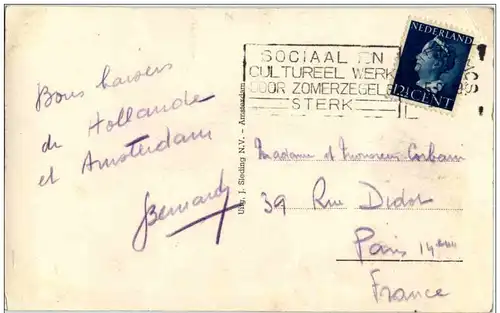 Bons baisers
de Hollande
et Amsterdam
Bernard
Uitg. J. Sleding N.V. - Amsterdam
SOCIAAL EN
CULTUREEL WERK
DOOR ZOMERZEGELS
STERK
NEDERLAND
12½ CENT
Madame et Monsieur
39 Rue Didot
Paris 14eme
France